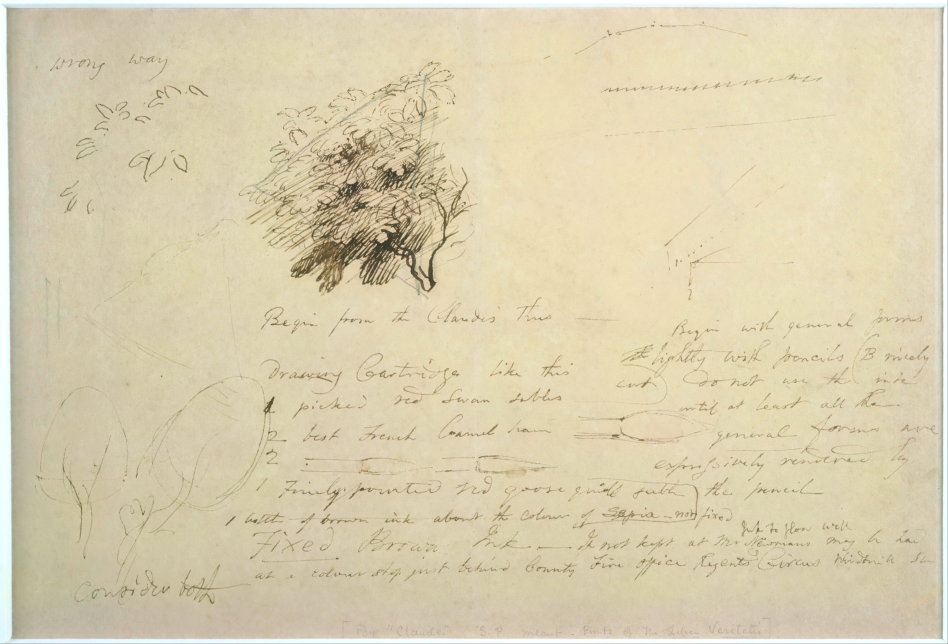 wrong way
Begin from the Claudes Thus
Begin with general forms
lightly with pencils (B nicely
cut) do not use the ink
until at least all the
general forms are
expressively rendered by
the pencil
Drawing Cartridge like this
1 picked red Swan sables
2 best French Camel hair
2
1 Finely pointed red goose quill
1 bottle of brown ink about the colour of Sepia - not fixed
Ink to flow well
Fixed Brown Ink — If not kept at Mr Newmans may be had
at a colour shop just behind County Fire office Regents Circus Windmill
consider both
[By "Claudes" S.P. meant - Prints of the Liber Veritatis]